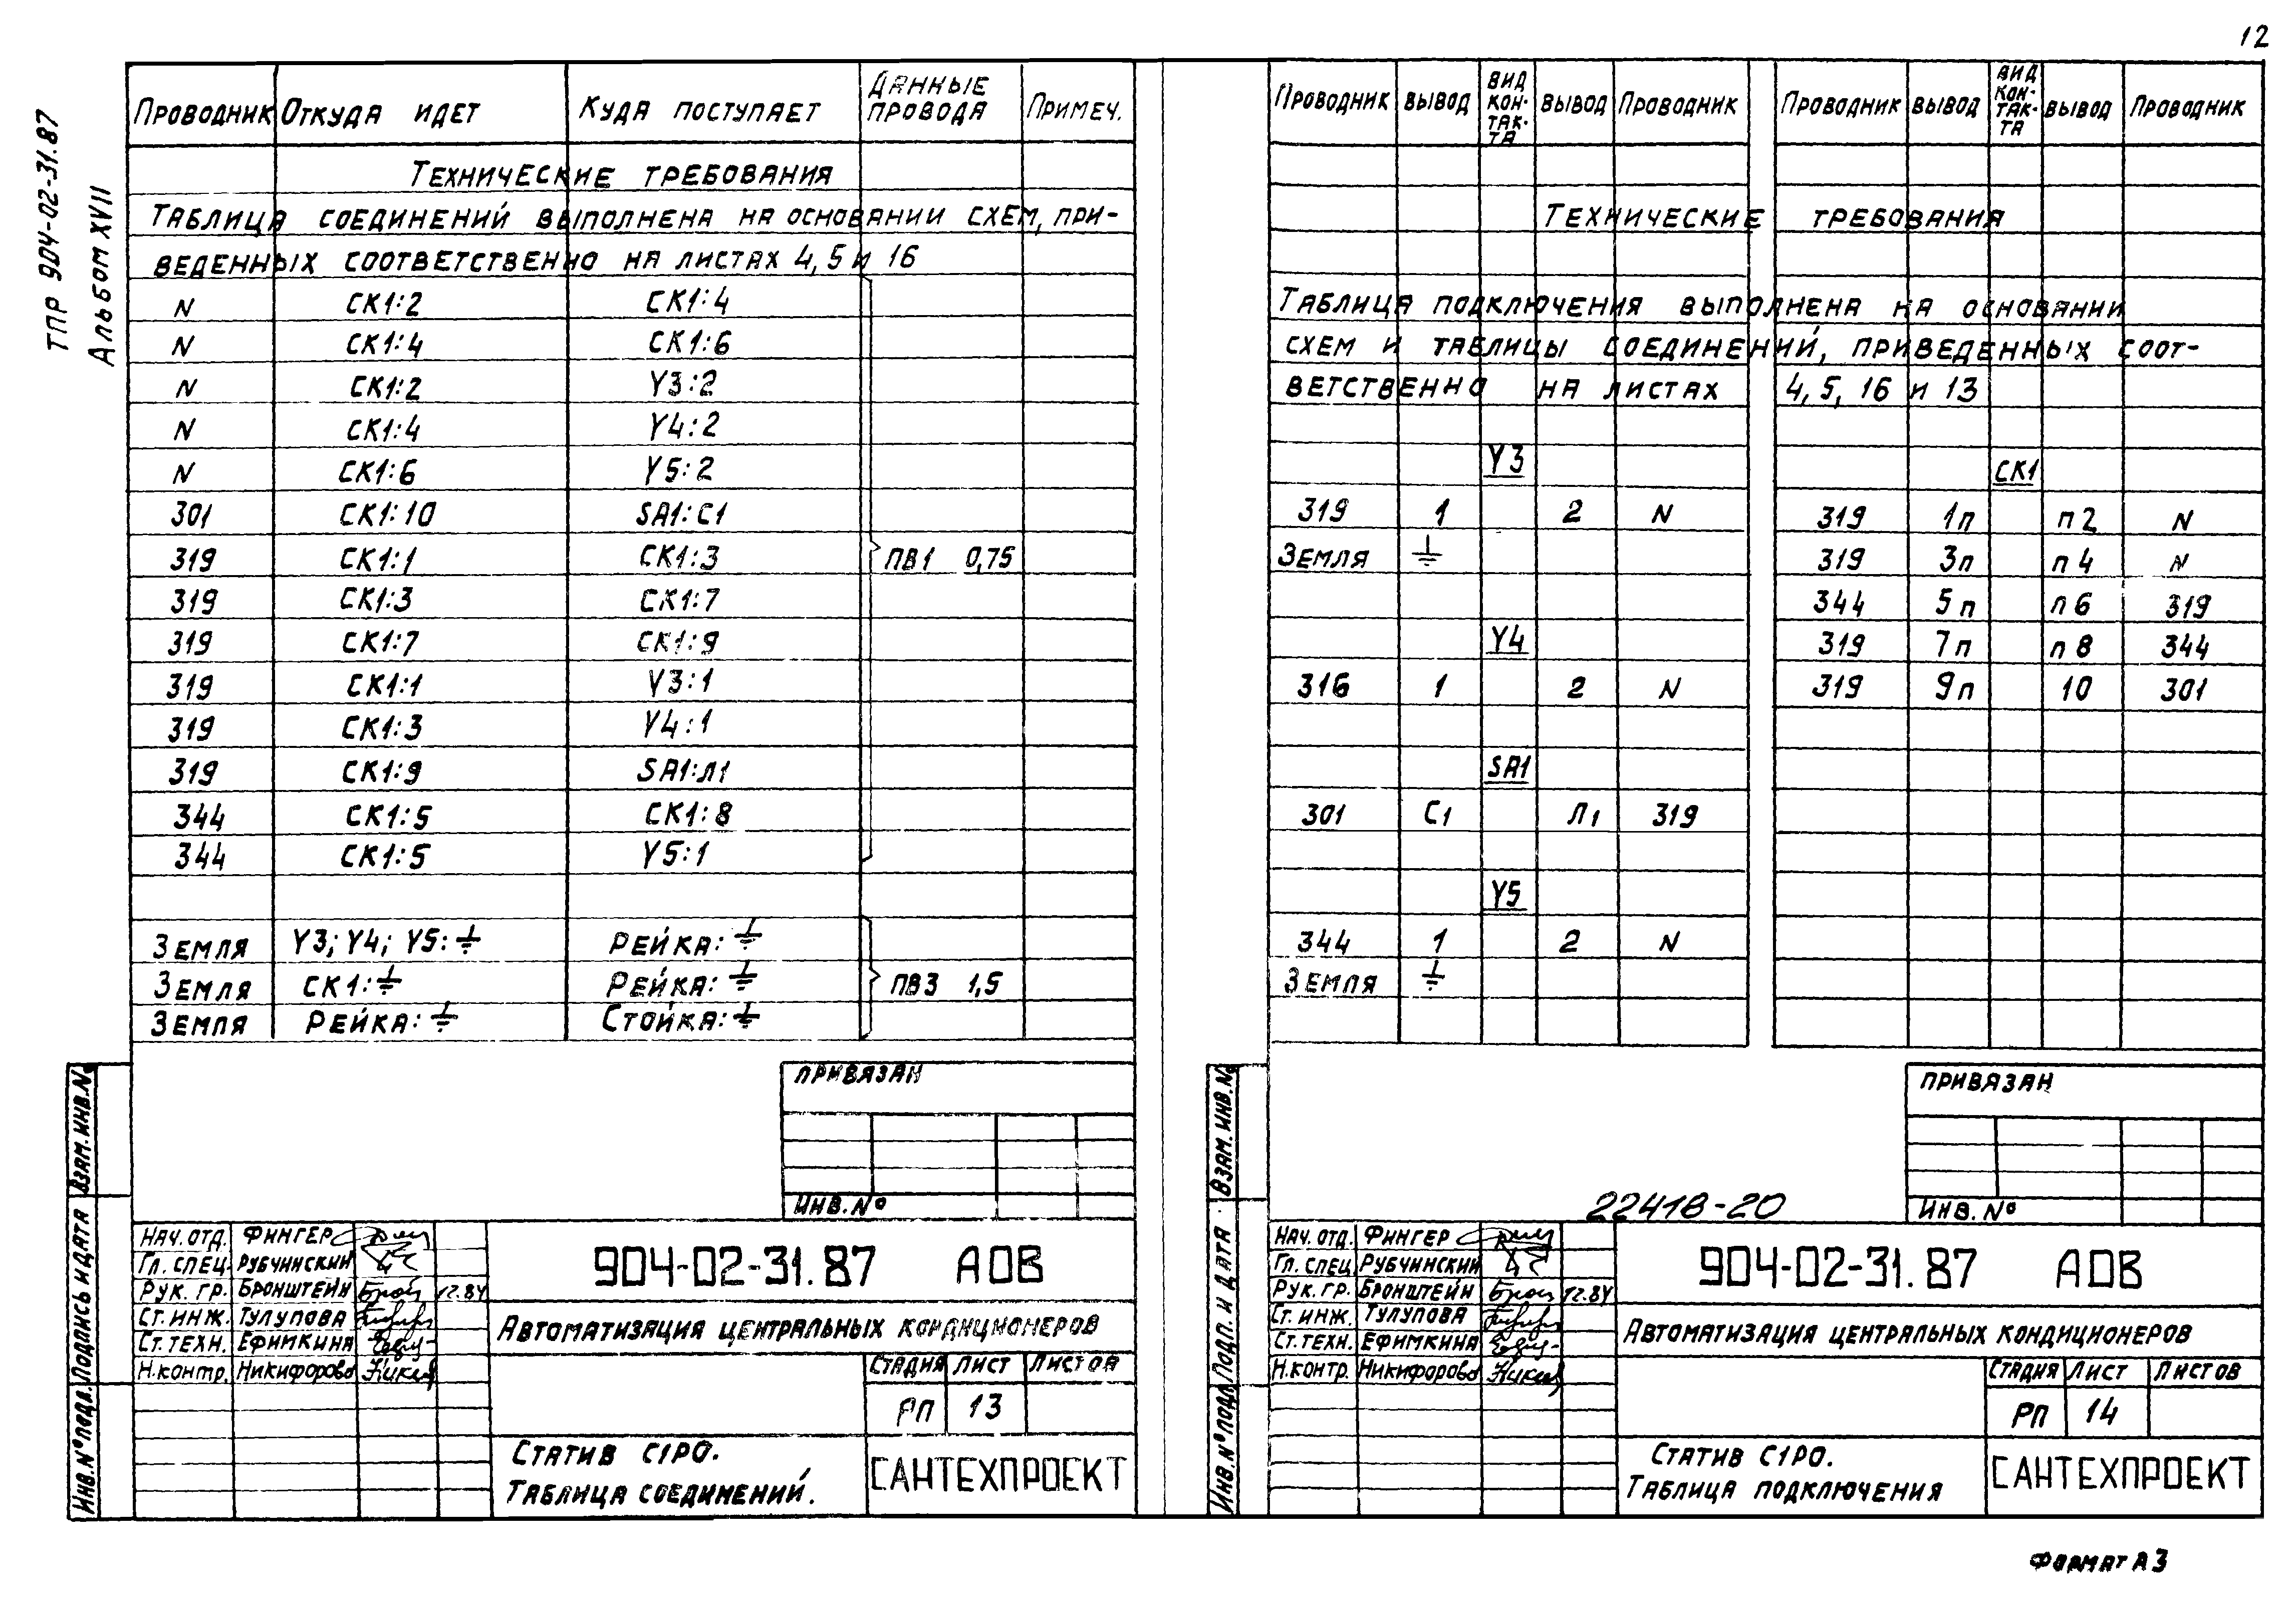 12
ТПР 904-02-31.87
Альбом XVII
Проводник Откуда идет Куда поступает Данные провода Примеч.
Технические требования
Таблица соединений выполнена на основании схем, при-
веденных соответственно на листах 4, 5 и 16
N СК1:2 СК1:4
N СК1:4 СК1:6
N СК1:2 Y3:2
N СК1:4 Y4:2
N СК1:6 Y5:2
301 СК1:10 SA1:С1
319 СК1:1 СК1:3 ПВ1 0,75
319 СК1:3 СК1:7
319 СК1:7 СК1:9
319 СК1:1 Y3:1
319 СК1:3 Y4:1
319 СК1:9 SA1:Л1
344 СК1:5 СК1:8
344 СК1:5 Y5:1
Земля Y3; Y4; Y5:⏚ Рейка:⏚
Земля СК1:⏚ Рейка:⏚ ПВ3 1,5
Земля Рейка:⏚ Стойка:⏚
Привязан
Инв.№
Взам.инв.№
Подпись и дата
Инв.№подл.
Нач.отд. Фингер
Гл.спец. Рубчинский
Рук.гр. Бронштейн 12.84
Ст.инж. Тулупова
Ст.техн. Ефимкина
Н.контр. Никифорова
904-02-31.87 АОВ
Автоматизация центральных кондиционеров
Стадия Лист Листов
РП 13
Статив С1РО.
Таблица соединений.
САНТЕХПРОЕКТ
Проводник вывод вид кон-так-та вывод Проводник Проводник вывод вид кон-так-та вывод Проводник
Технические требования
Таблица подключения выполнена на основании
схем и таблицы соединений, приведенных соот-
ветственно на листах 4, 5, 16 и 13
Y3
319 1 2 N
Земля ⏚
Y4
316 1 2 N
SA1
301 С1 Л1 319
Y5
344 1 2 N
Земля ⏚
СК1
319 1п п2 N
319 3п п4 N
344 5п п6 319
319 7п п8 344
319 9п 10 301
Привязан
Инв.№
22418-20
Взам.инв.№
Подп. и дата
Инв.№подл.
Нач.отд. Фингер
Гл.спец. Рубчинский
Рук.гр. Бронштейн 12.84
Ст.инж. Тулупова
Ст.техн. Ефимкина
Н.контр. Никифорова
904-02-31.87 АОВ
Автоматизация центральных кондиционеров
Стадия Лист Листов
РП 14
Статив С1РО.
Таблица подключения
САНТЕХПРОЕКТ
Формат А3